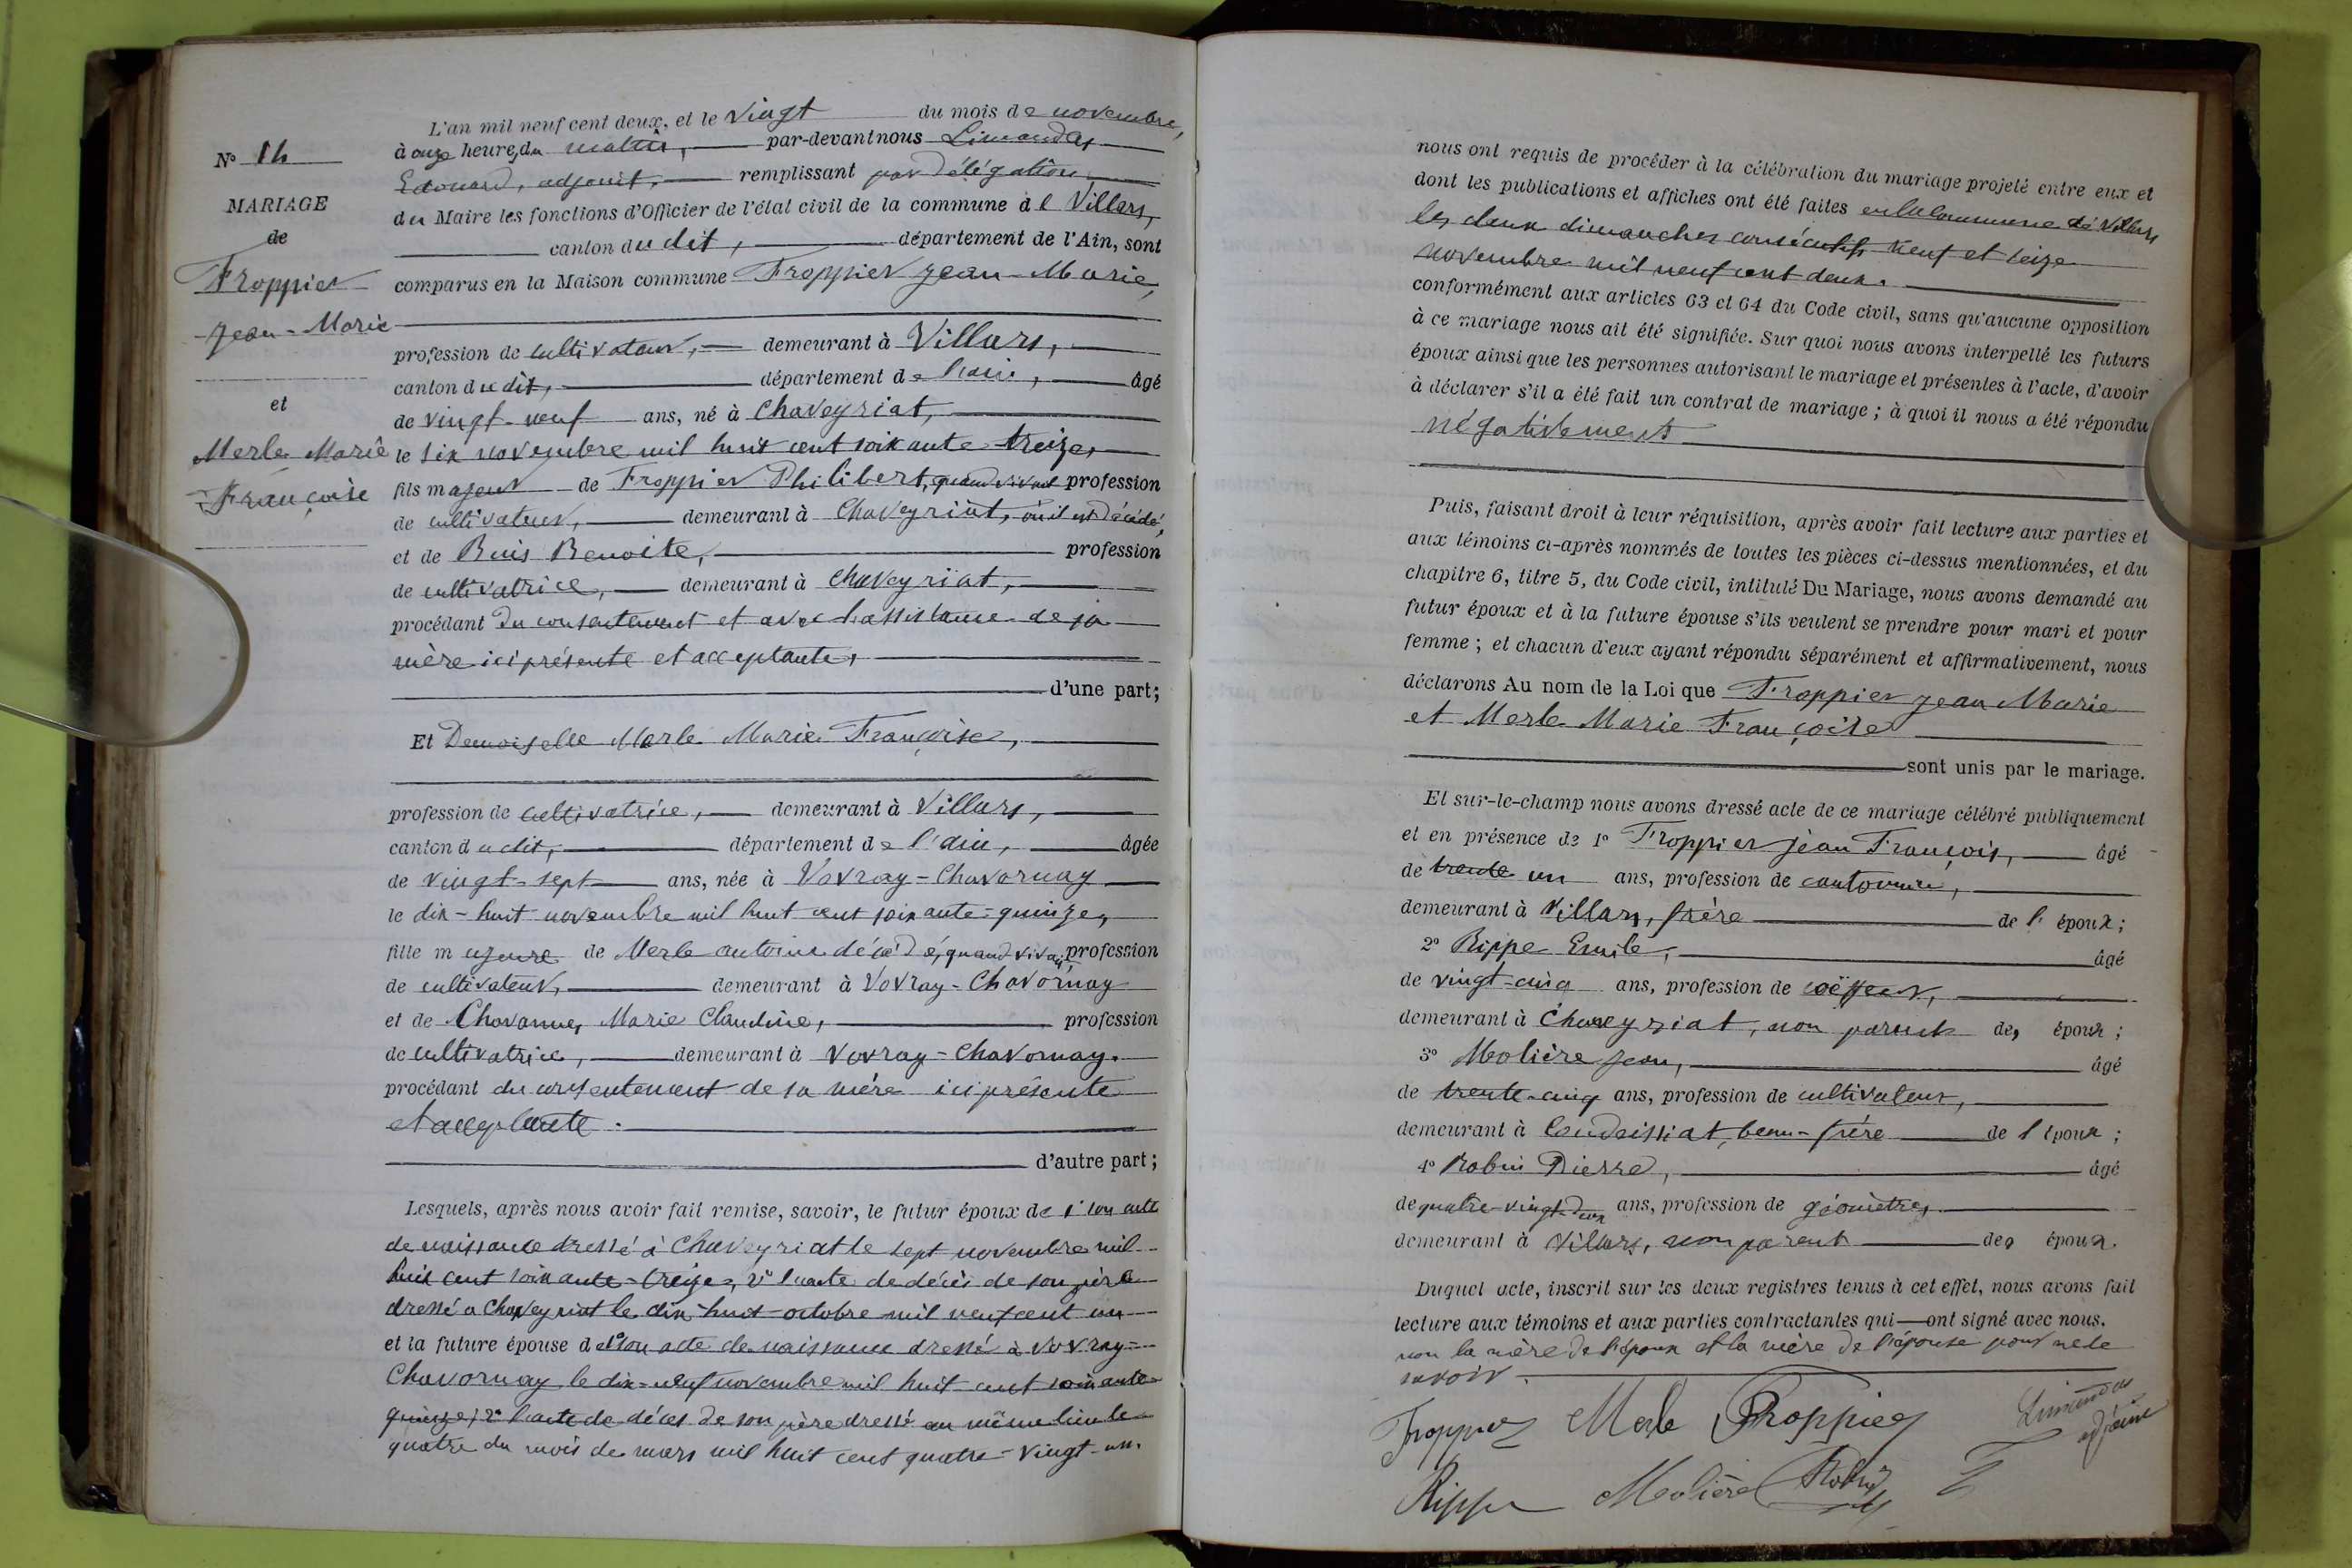 N° 14
MARIAGE
de
Froppier
Jean-Marie
et
Merle Marie
Françoise
L'an mil neuf cent deux, et le vingt du mois de novembre,
à onze heures du matin, par-devant nous Limandas
Edouard, adjoint, remplissant par délégation
du Maire les fonctions d'Officier de l'état civil de la commune de Villars,
canton du dit, département de l'Ain, sont
comparus en la Maison commune Froppier Jean-Marie,
profession de cultivateur, demeurant à Villars,
canton du dit, département de l'ain, âgé
de vingt-neuf ans, né à Chaveyriat,
le six novembre mil huit cent soixante-treize,
fils majeur de Froppier Philibert, quand vivait profession
de cultivateur, demeurant à Chaveyriat, où il est décédé,
et de Buis Benoite, profession
de cultivatrice, demeurant à Chaveyriat,
procédant du consentement et avec l'assistance de sa
mère ici présente et acceptante,
d'une part;
Et Demoiselle Merle Marie Françoise,
profession de cultivatrice, demeurant à Villars,
canton du dit, département de l'ain, âgée
de vingt-sept ans, née à Vovray-Chavornay
le dix-huit novembre mil huit cent soixante-quinze,
fille majeure de Merle antoine décédé, quand vivait, profession
de cultivateur, demeurant à Vovray-Chavornay
et de Chavanne, Marie Claudine, profession
de cultivatrice, demeurant à Vovray-Chavornay.
procédant du consentement de sa mère ici présente
et acceptante.
d'autre part;
Lesquels, après nous avoir fait remise, savoir, le futur époux de 1° son acte
de naissance dressé à Chaveyriat le sept novembre mil
huit cent soixante-treize, 2° l'acte de décès de son père
dressé à Chaveyriat le dix-huit octobre mil neuf cent un
et la future épouse de 1° son acte de naissance dressé à Vovray-
Chavornay le dix-neuf novembre mil huit cent soixante
quinze; 2° l'acte de décès de son père dressé au même lieu le
quatre du mois de mars mil huit cent quatre-vingt-un.
nous ont requis de procéder à la célébration du mariage projeté entre eux et
dont les publications et affiches ont été faites en la Commune de Villars
les deux dimanches consécutifs neuf et seize
novembre mil neuf cent deux.
conformément aux articles 63 et 64 du Code civil, sans qu'aucune opposition
à ce mariage nous ait été signifiée. Sur quoi nous avons interpellé les futurs
époux ainsi que les personnes autorisant le mariage et présentes à l'acte, d'avoir
à déclarer s'il a été fait un contrat de mariage; à quoi il nous a été répondu
négativement
Puis, faisant droit à leur réquisition, après avoir fait lecture aux parties et
aux témoins ci-après nommés de toutes les pièces ci-dessus mentionnées, et du
chapitre 6, titre 5, du Code civil, intitulé Du Mariage, nous avons demandé au
futur époux et à la future épouse s'ils veulent se prendre pour mari et pour
femme; et chacun d'eux ayant répondu séparément et affirmativement, nous
déclarons Au nom de la Loi que Froppier Jean Marie
et Merle Marie Françoise
sont unis par le mariage.
Et sur-le-champ nous avons dressé acte de ce mariage célébré publiquement
et en présence de 1° Froppier Jean François, âgé
de trente un ans, profession de cantonnier,
demeurant à Villars, frère de l' époux;
2° Rippe Emile, âgé
de vingt-cinq ans, profession de coëffeur,
demeurant à Chaveyriat, non parent des époux;
3° Molière Jean, âgé
de trente-cinq ans, profession de cultivateur,
demeurant à Condeissiat, beau-frère de l'époux;
4° Robin Pierre, âgé
de quatre-vingt-deux ans, profession de géomètre,
demeurant à Villars, non parent des époux.
Duquel acte, inscrit sur les deux registres tenus à cet effet, nous avons fait
lecture aux témoins et aux parties contractantes qui ont signé avec nous.
non la mère de l'époux et la mère de l'épouse pour ne le
savoir.
Froppier Merle Froppier Limandas
adjoint
Rippe Molière Robin